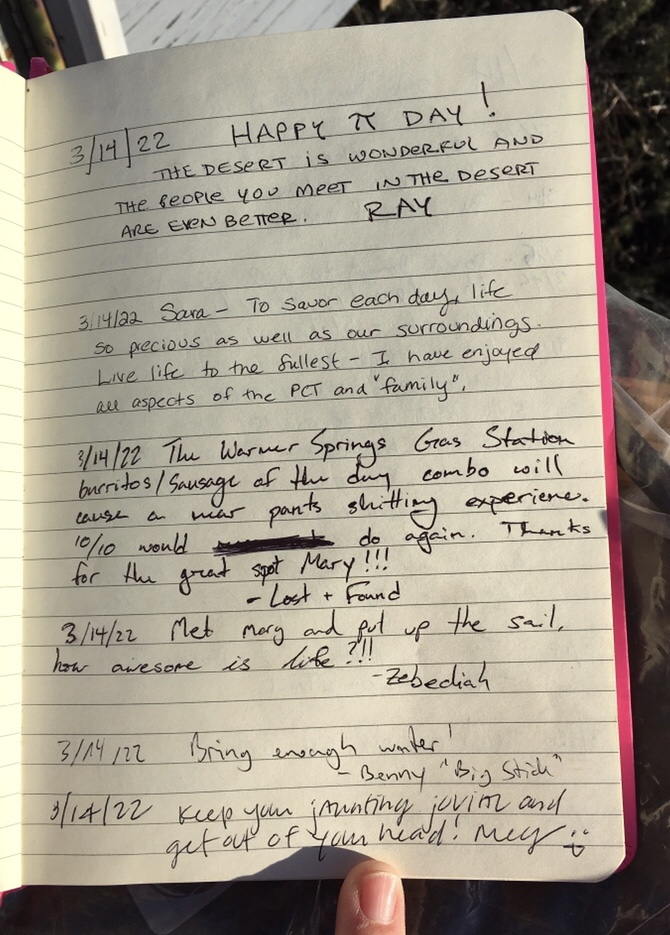 3/14/22 HAPPY π DAY!
THE DESERT IS WONDERFUL AND
THE PEOPLE YOU MEET IN THE DESERT
ARE EVEN BETTER. RAY
3/14/22 Sara – To Savor each day, life
so precious as well as our surroundings.
Live life to the fullest – I have enjoyed
all aspects of the PCT and "family".
3/14/22 The Warmer Springs Gas Station
burritos/Sausage of the day combo will
cause a near pants shitting experience.
10/10 would do again. Thanks
for the great spot Mary!!!
- Lost + Found
3/14/22 Met mary and put up the sail,
how awesome is life?!!
-Zebediah
3/14/22 Bring enough water!
- Benny "Big Stick"
3/14/22 Keep your jaunting and
get out of your head! Meg